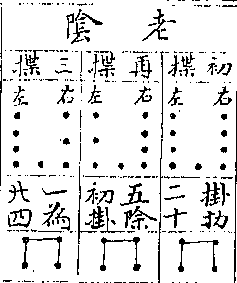 老陰
初揲
再揲
三揲
右左
右左
右左
掛扐
二十
五除
初掛
一為
廿四